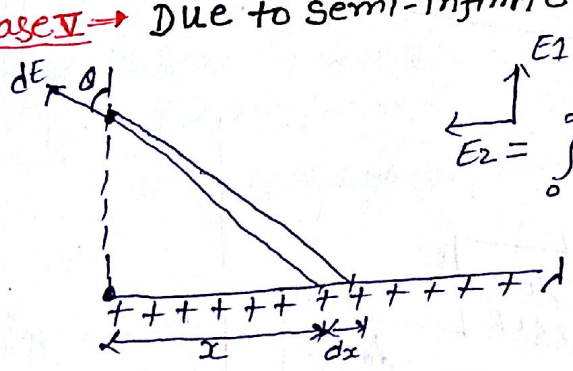 ase V → Due to semi-infinite
dE θ
E1
E2 = ∫
0
+ + + + + + + + + + + + + d
x dx